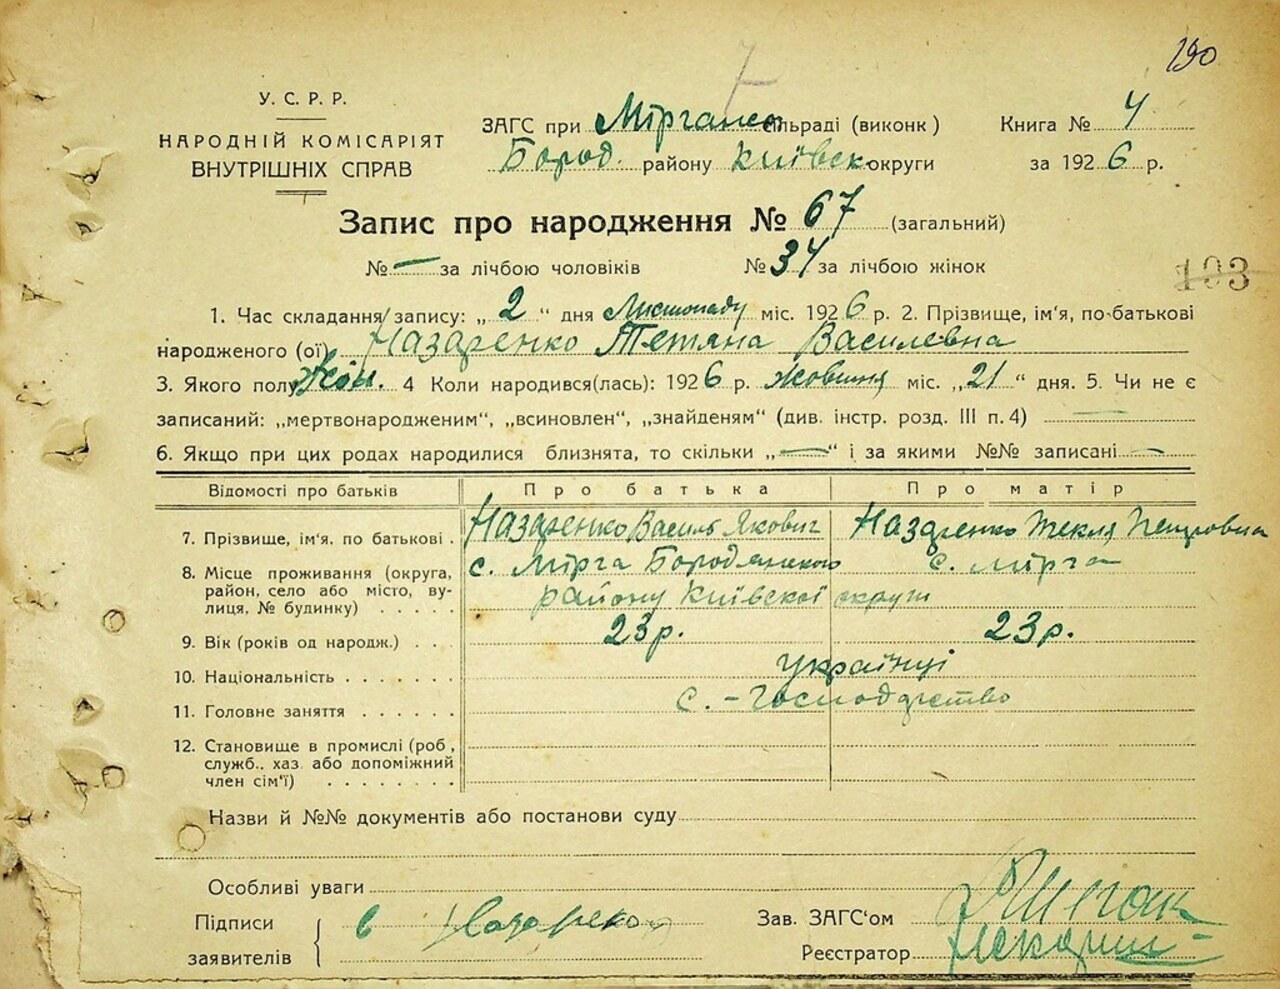 190
7
У. С. Р. Р.
НАРОДНІЙ КОМІСАРІЯТ
ВНУТРІШНІХ СПРАВ
ЗАГС при Мірганс. сільраді (виконк) Книга № 4
Бород. району Київськ. округи за 1926 р.
Запис про народження № 67 (загальний)
№ — за лічбою чоловіків № 34 за лічбою жінок
103
1. Час складання запису: „ 2 “ дня Листопаду міс. 1926 р. 2. Прізвище, ім'я, по-батькові
народженого (ої) Назаренко Тетяна Василевна
3. Якого полу Жін. 4 Коли народився(лась): 1926 р. жовтня міс. „21“ дня. 5. Чи не є
записаний: „мертвонародженим“, „всиновлен“, „знайденям“ (див. інстр. розд. III п. 4) —
6. Якщо при цих родах народилися близнята, то скільки „—“ і за якими №№ записані —
Відомості про батьків Про батька Про матір
7. Прізвище, ім'я. по батькові . Назаренко Василь Якович Назаренко Текля Петровна
8. Місце проживання (округа, район, село або місто, вулиця, № будинку) . . . . . с. Мірча Бородянського с. Мірча
району Київскої округи
9. Вік (років од народж.) . . . 23р. 23р.
10. Національність . . . . . . . українці
11. Головне заняття . . . . . . с.-господарство
12. Становище в промислі (роб, служб., хаз. або допоміжний член сім'ї) . . . . . . . .
Назви й №№ документів або постанови суду
Особливі уваги
Підписи заявителів { в Назаренко
Зав. ЗАГС‘ом
Реєстратор